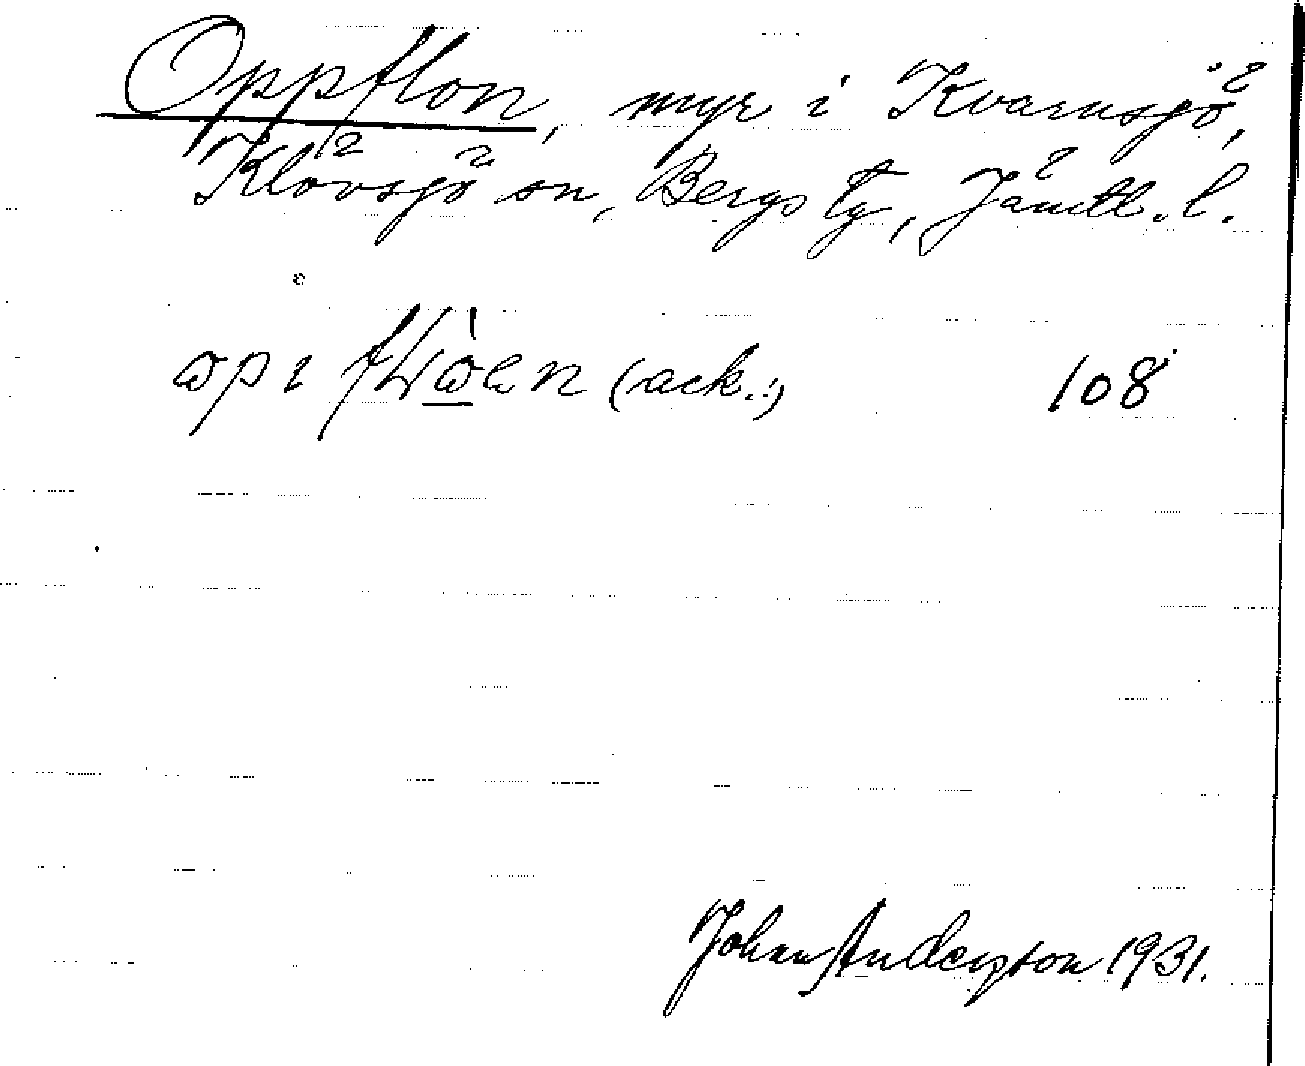 Oppflon, myr i Kvarnsjö,
Klövsjö sn, Bergs tg, Jämtl. l.
(ack.) 108
Johan Anderson 1931.